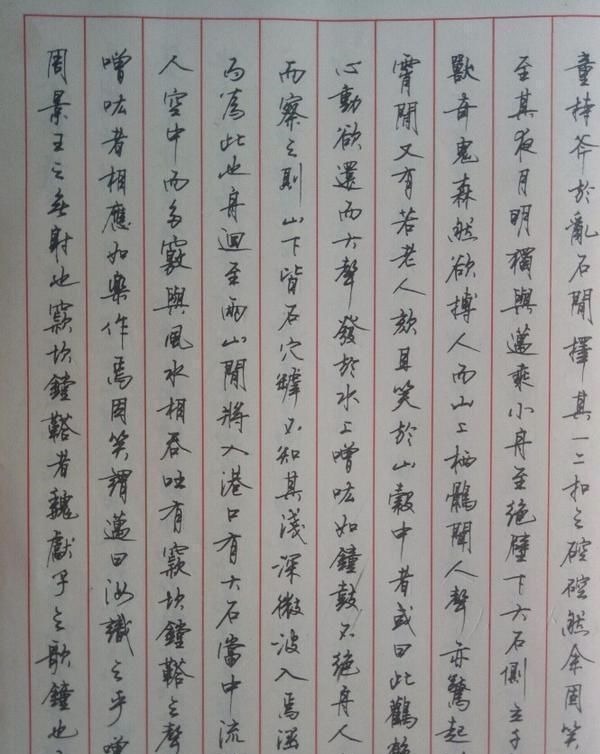 童持斧於亂石間擇其一二扣之硿硿然余固笑
至其夜月明獨與邁乘小舟至絕壁下大石側立千
獸奇鬼森然欲搏人而山上栖鶻聞人聲亦驚起
霄間又有若老人欬且笑於山穀中者或曰此鸛鶴
心動欲還而大聲發於水上噌吰如鐘鼓不絕舟人
而察之則山下皆石穴罅不知其淺深微波入焉涵
而為此也舟迴至兩山間將入港口有大石當中流
人空中而多竅與風水相吞吐有窾坎鏜鞳之聲
噌吰者相應如樂作焉因笑謂邁曰汝識之乎噌
周景王之無射也窾坎鏜鞳者魏獻子之歌鐘也